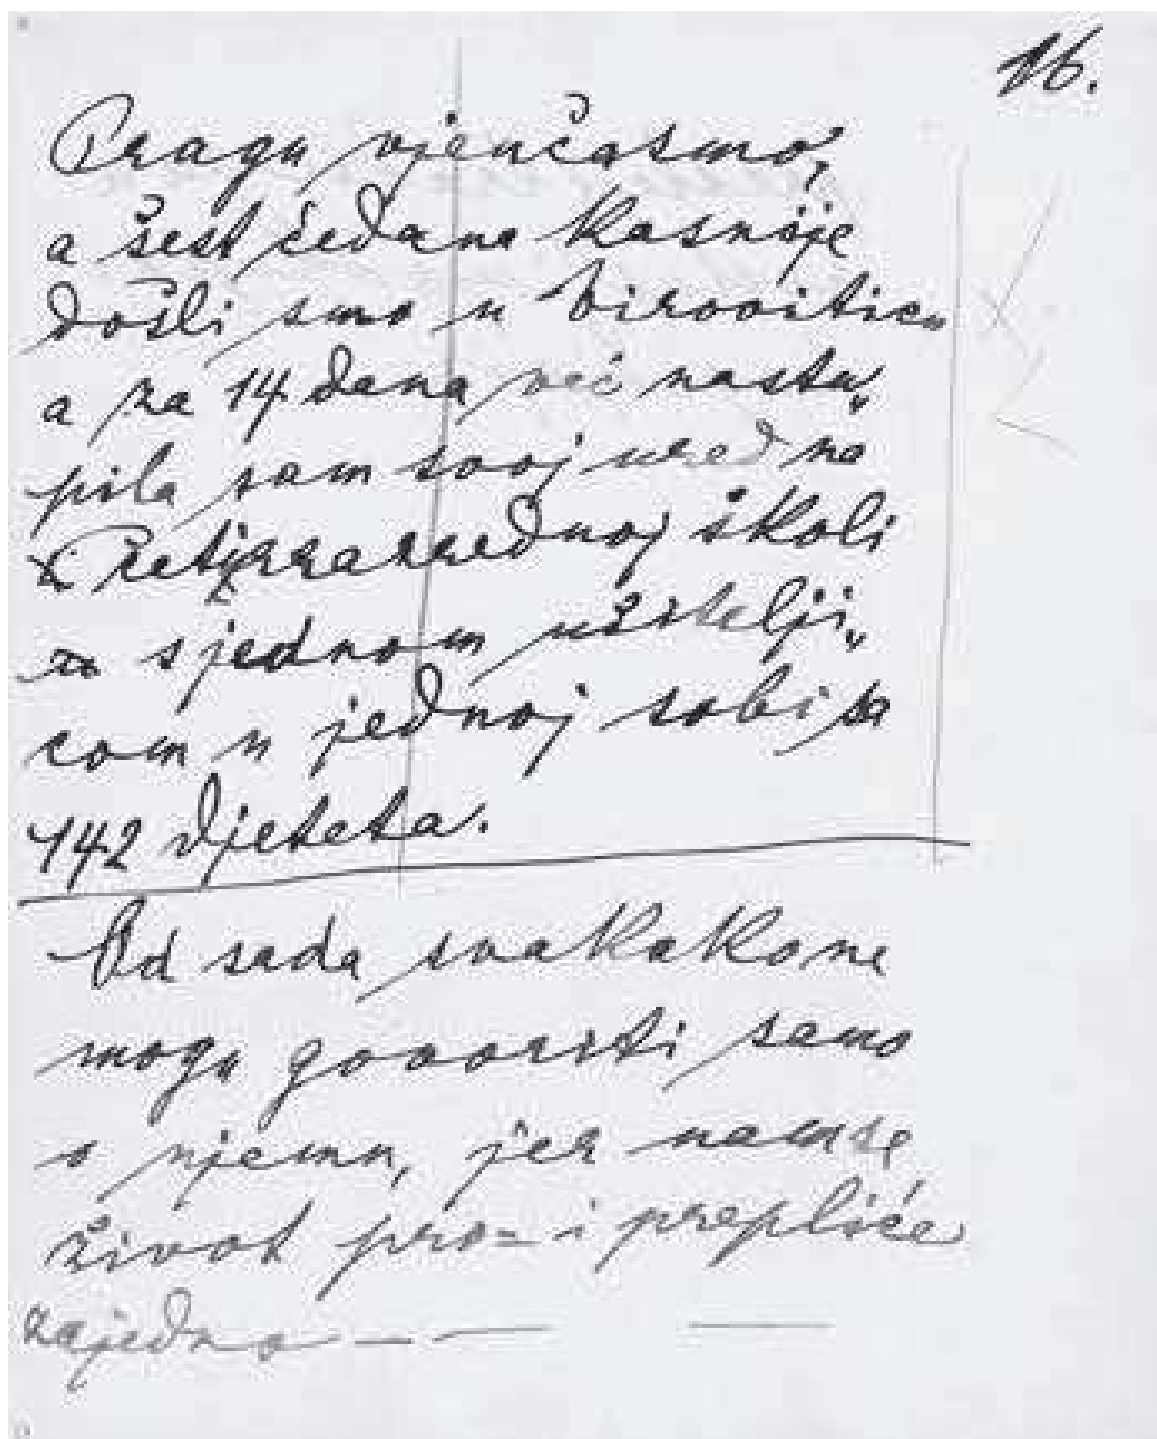 16.
Pragu vjenčasmo,
a šest nedana kasnije
došli smo u Viroviticu
a za 14 dana već nastu„
pila sam svoj ured na
školi
s jednom učitelji„
com u jednoj sobi sa
142 djeteta.
Od sada svakako ne
mogu govoriti samo
o njemu, jer nam se
život pro= i prepliće
zajedno — — —